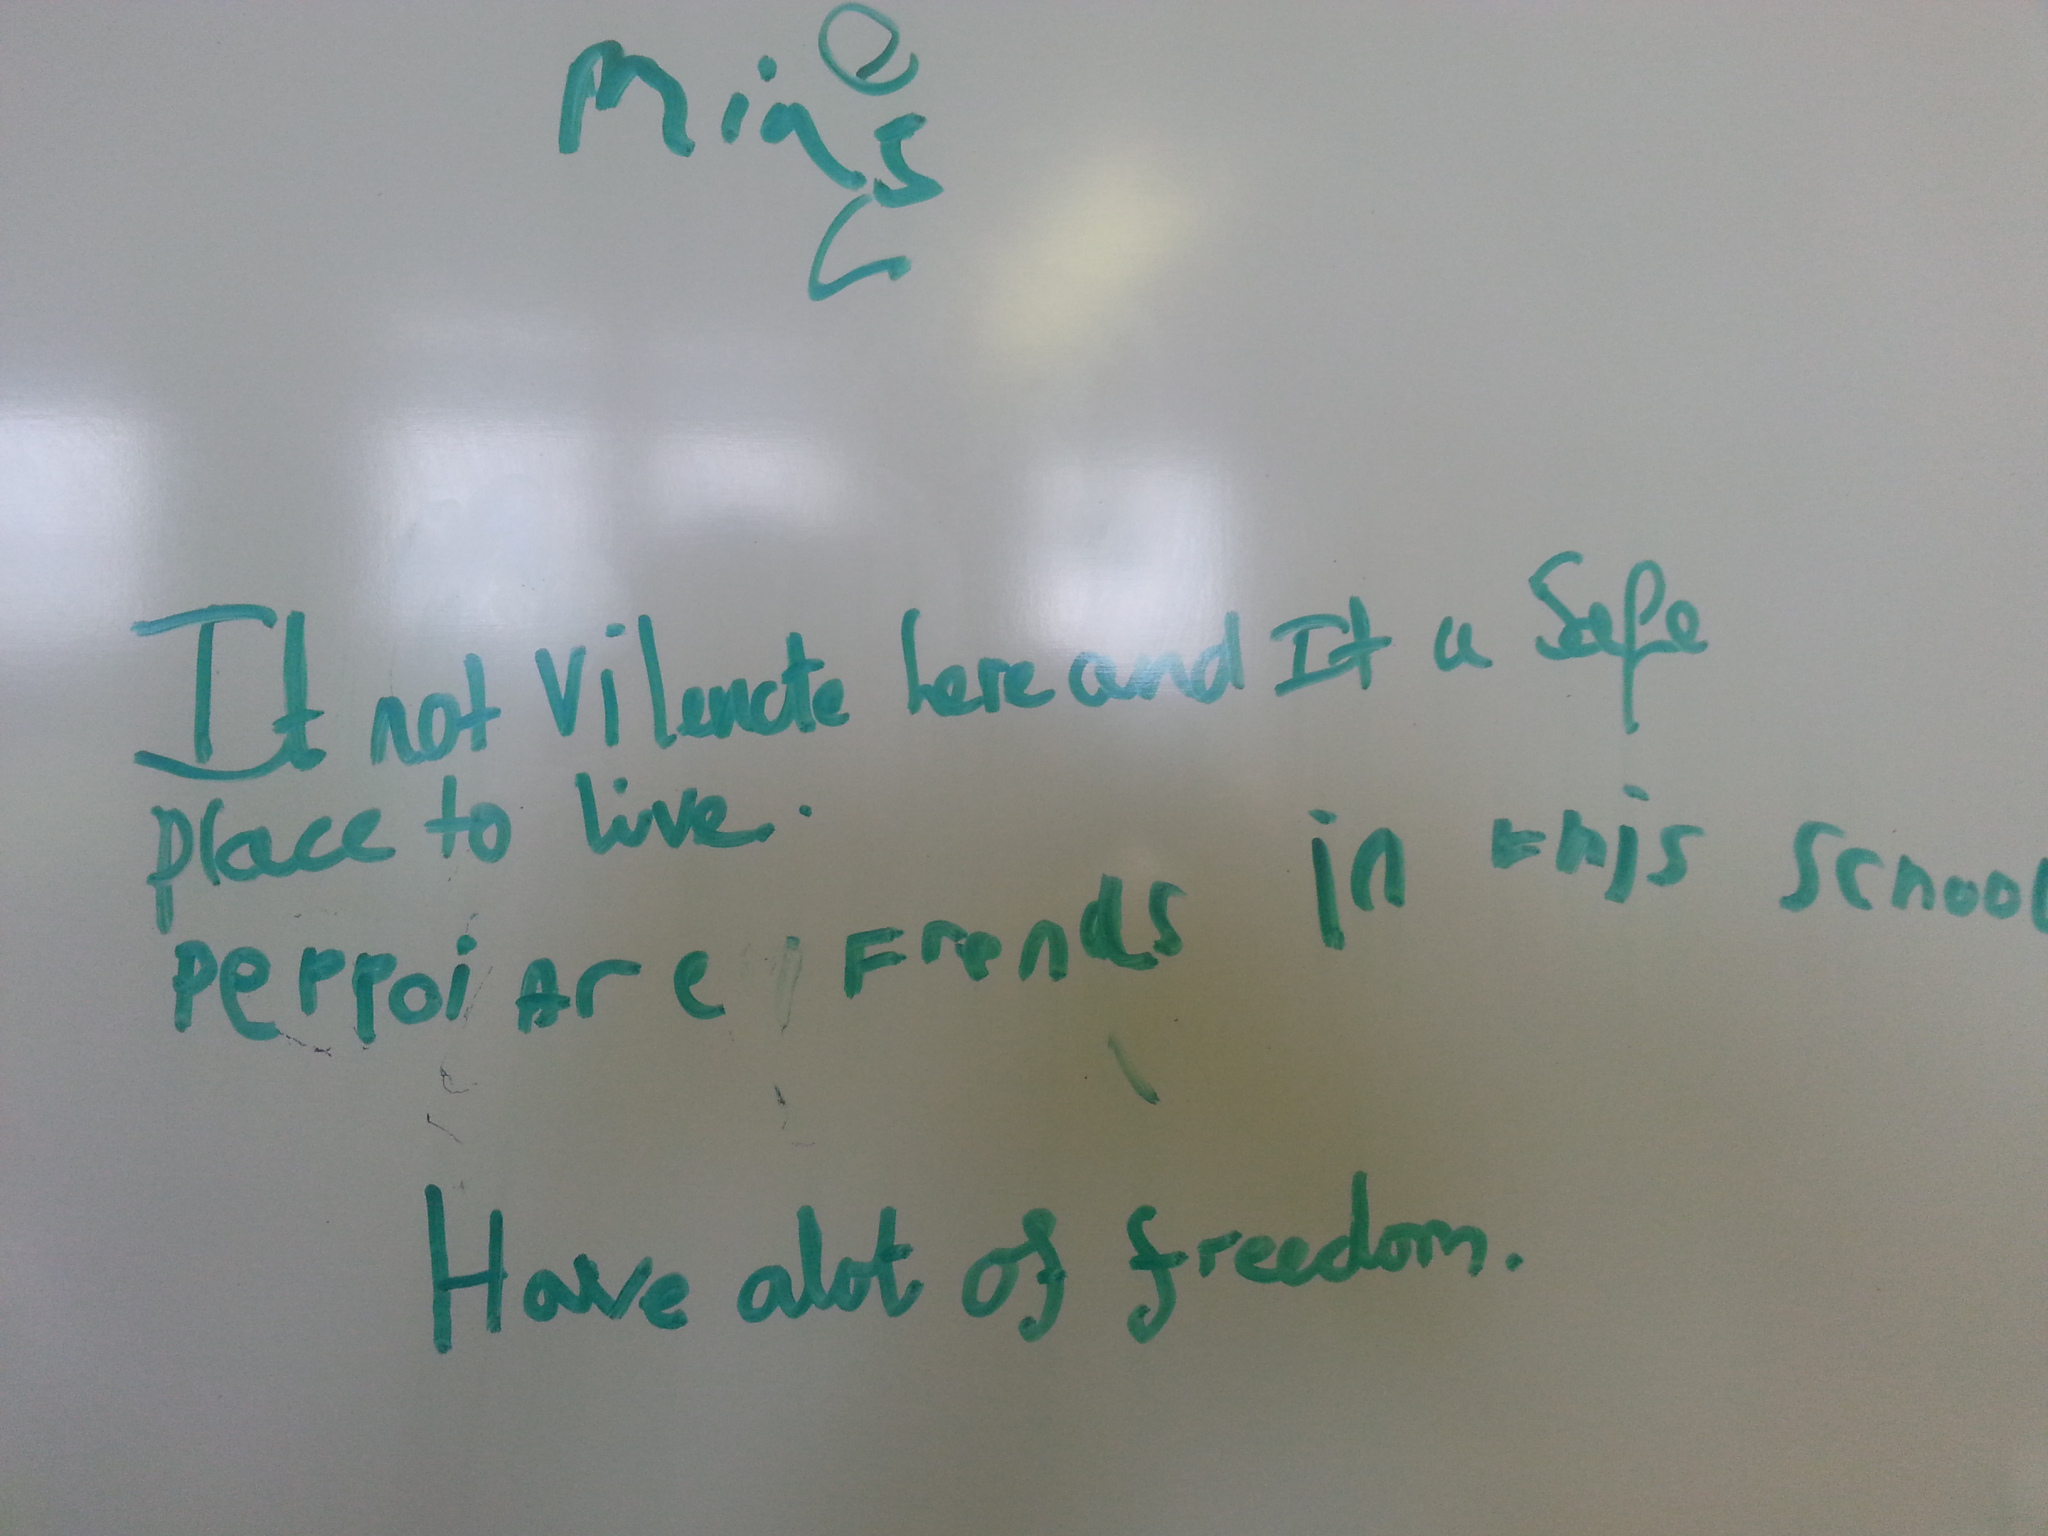 It not Vilencte here and It a Safe
place to live.
perpoi Are Frends in this School
Have alot of freedom.